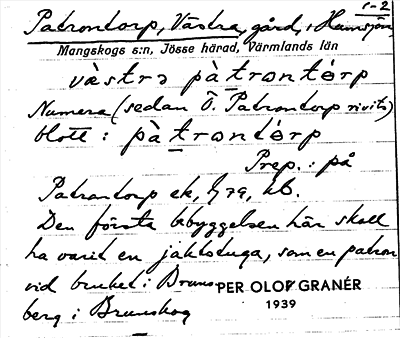 1-2
Patrontorp, Västra, gård, i Hamsjön
Mangskogs s:n, Jösse härad, Värmlands län
västra pàtrontórp
Numera (sedan Ö. Patrontorp rivits)
blott: pàtrontórp
Prep.: på
Patrontorp ek, kb.
Den första bebyggelsen här skall
ha varit en jaktstuga, som en patron
vid bruket i Bruns-
berg i Brunskog
PER OLOF GRANÉR
1939